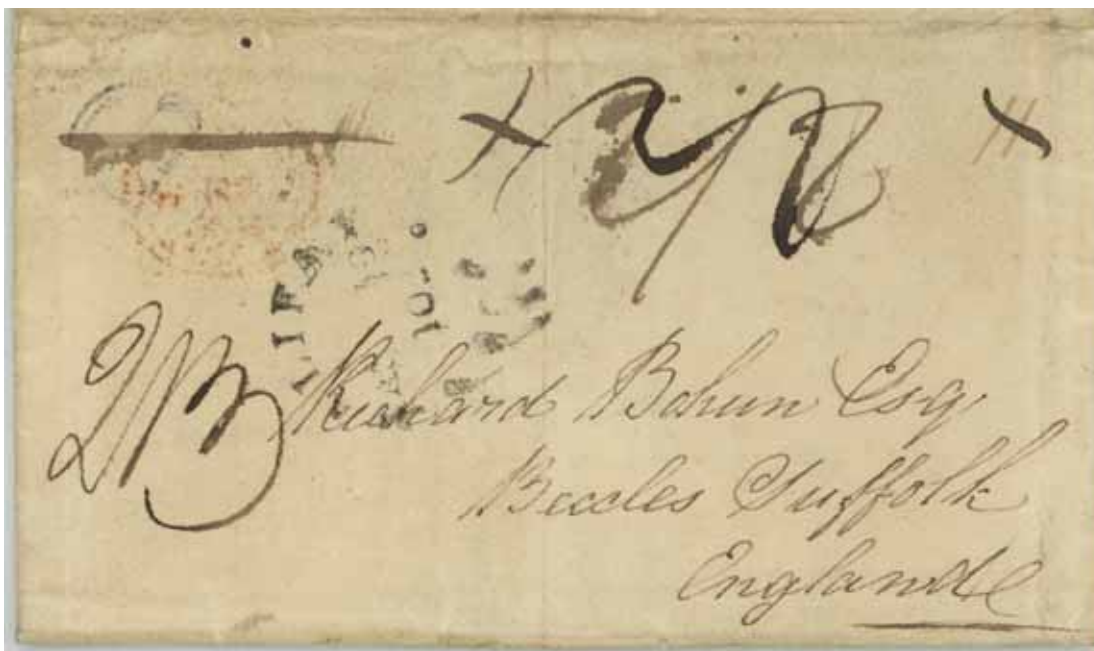 2/2
10
2/3
Richard Bohun Esq.
Beccles Suffolk
England